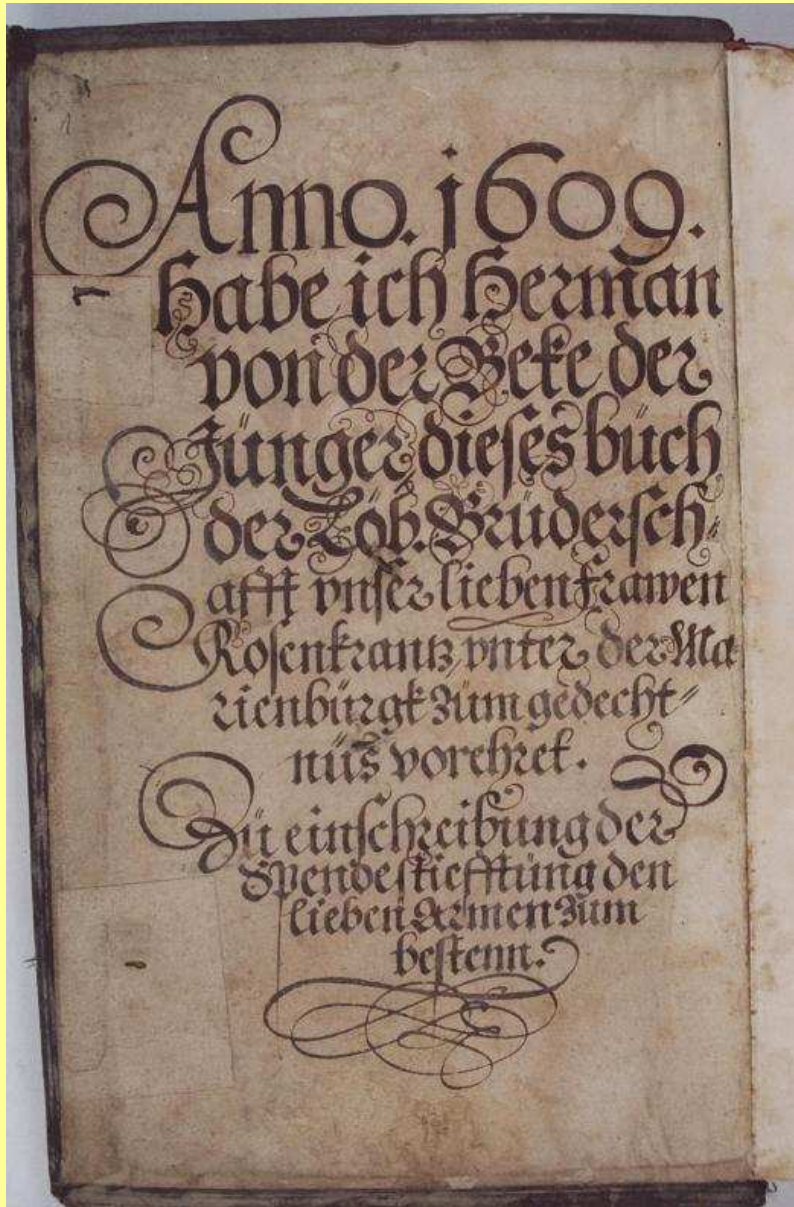 Anno. 1609.
Habe ich Herman
von der Beke der
Jünger dieses büch
der Löb. Brüdersch=
afft vnser lieben Frawen
Rosenkrantz vnter der Ma
rienbürgk züm gedecht=
nüs vorehret.
Zü einschreibung der
Spendestiefftüng den
lieben Armen züm
bestenn.